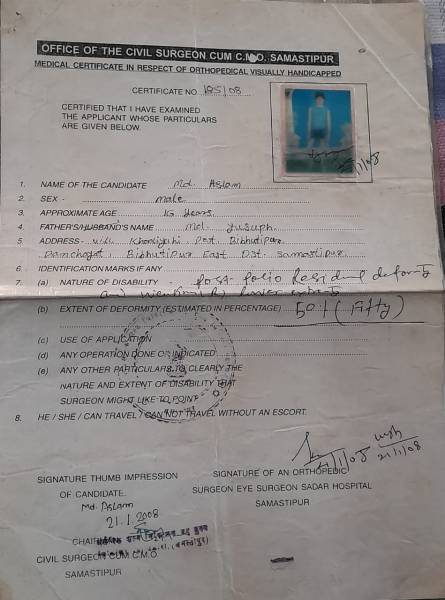 OFFICE OF THE CIVIL SURGEON CUM C.M.O. SAMASTIPUR
MEDICAL CERTIFICATE IN RESPECT OF ORTHOPEDICAL VISUALLY HANDICAPPED
CERTIFICATE NO. 185/08
CERTIFIED THAT I HAVE EXAMINED
THE APPLICANT WHOSE PARTICULARS
ARE GIVEN BELOW.
1. NAME OF THE CANDIDATE Md. Aslam
2. SEX - Male
3. APPROXIMATE AGE 16 Years
4. FATHER'S/HUSBAND'S NAME Md. Yusuph
5. ADDRESS - Post. Bibhutipur
Panchayat Bibhutipur East Dist. Samastipur
6. IDENTIFICATION MARKS IF ANY
7. (a) NATURE OF DISABILITY - Post Polio Residual deformity
(b) EXTENT OF DEFORMITY (ESTIMATED IN PERCENTAGE) 50% (Fifty)
(c) USE OF APPLICATION
(d) ANY OPERATION DONE OR INDICATED
(e) ANY OTHER PARTICULARS TO CLEARLY THE
NATURE AND EXTENT OF DISABILITY THAT
SURGEON MIGHT LIKE TO POINT
8. HE / SHE / CAN TRAVEL / CAN NOT TRAVEL WITHOUT AN ESCORT.
21/1/08
21/1/08
SIGNATURE THUMB IMPRESSION
OF CANDIDATE.
Md. Aslam
21.1.2008
SIGNATURE OF AN ORTHOPEDIC
SURGEON EYE SURGEON SADAR HOSPITAL
SAMASTIPUR
CIVIL SURGEON CUM C.M.O.
SAMASTIPUR